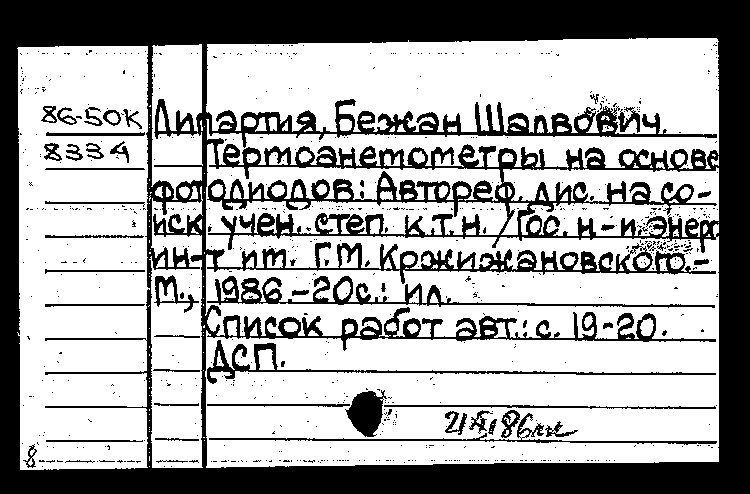 86-50К Липартия, Бежан Шалвович.
8334 Термоанемометры на основе
фотодиодов: Автореф. дис. на со-
иск. учен. степ. к.т.н. /Гос. н-и. энерг.
ин-т им. Г.М. Кржижановского.-
М., 1986.-20с.: ил.
Список работ авт.: с. 19-20.
ДСП.
8